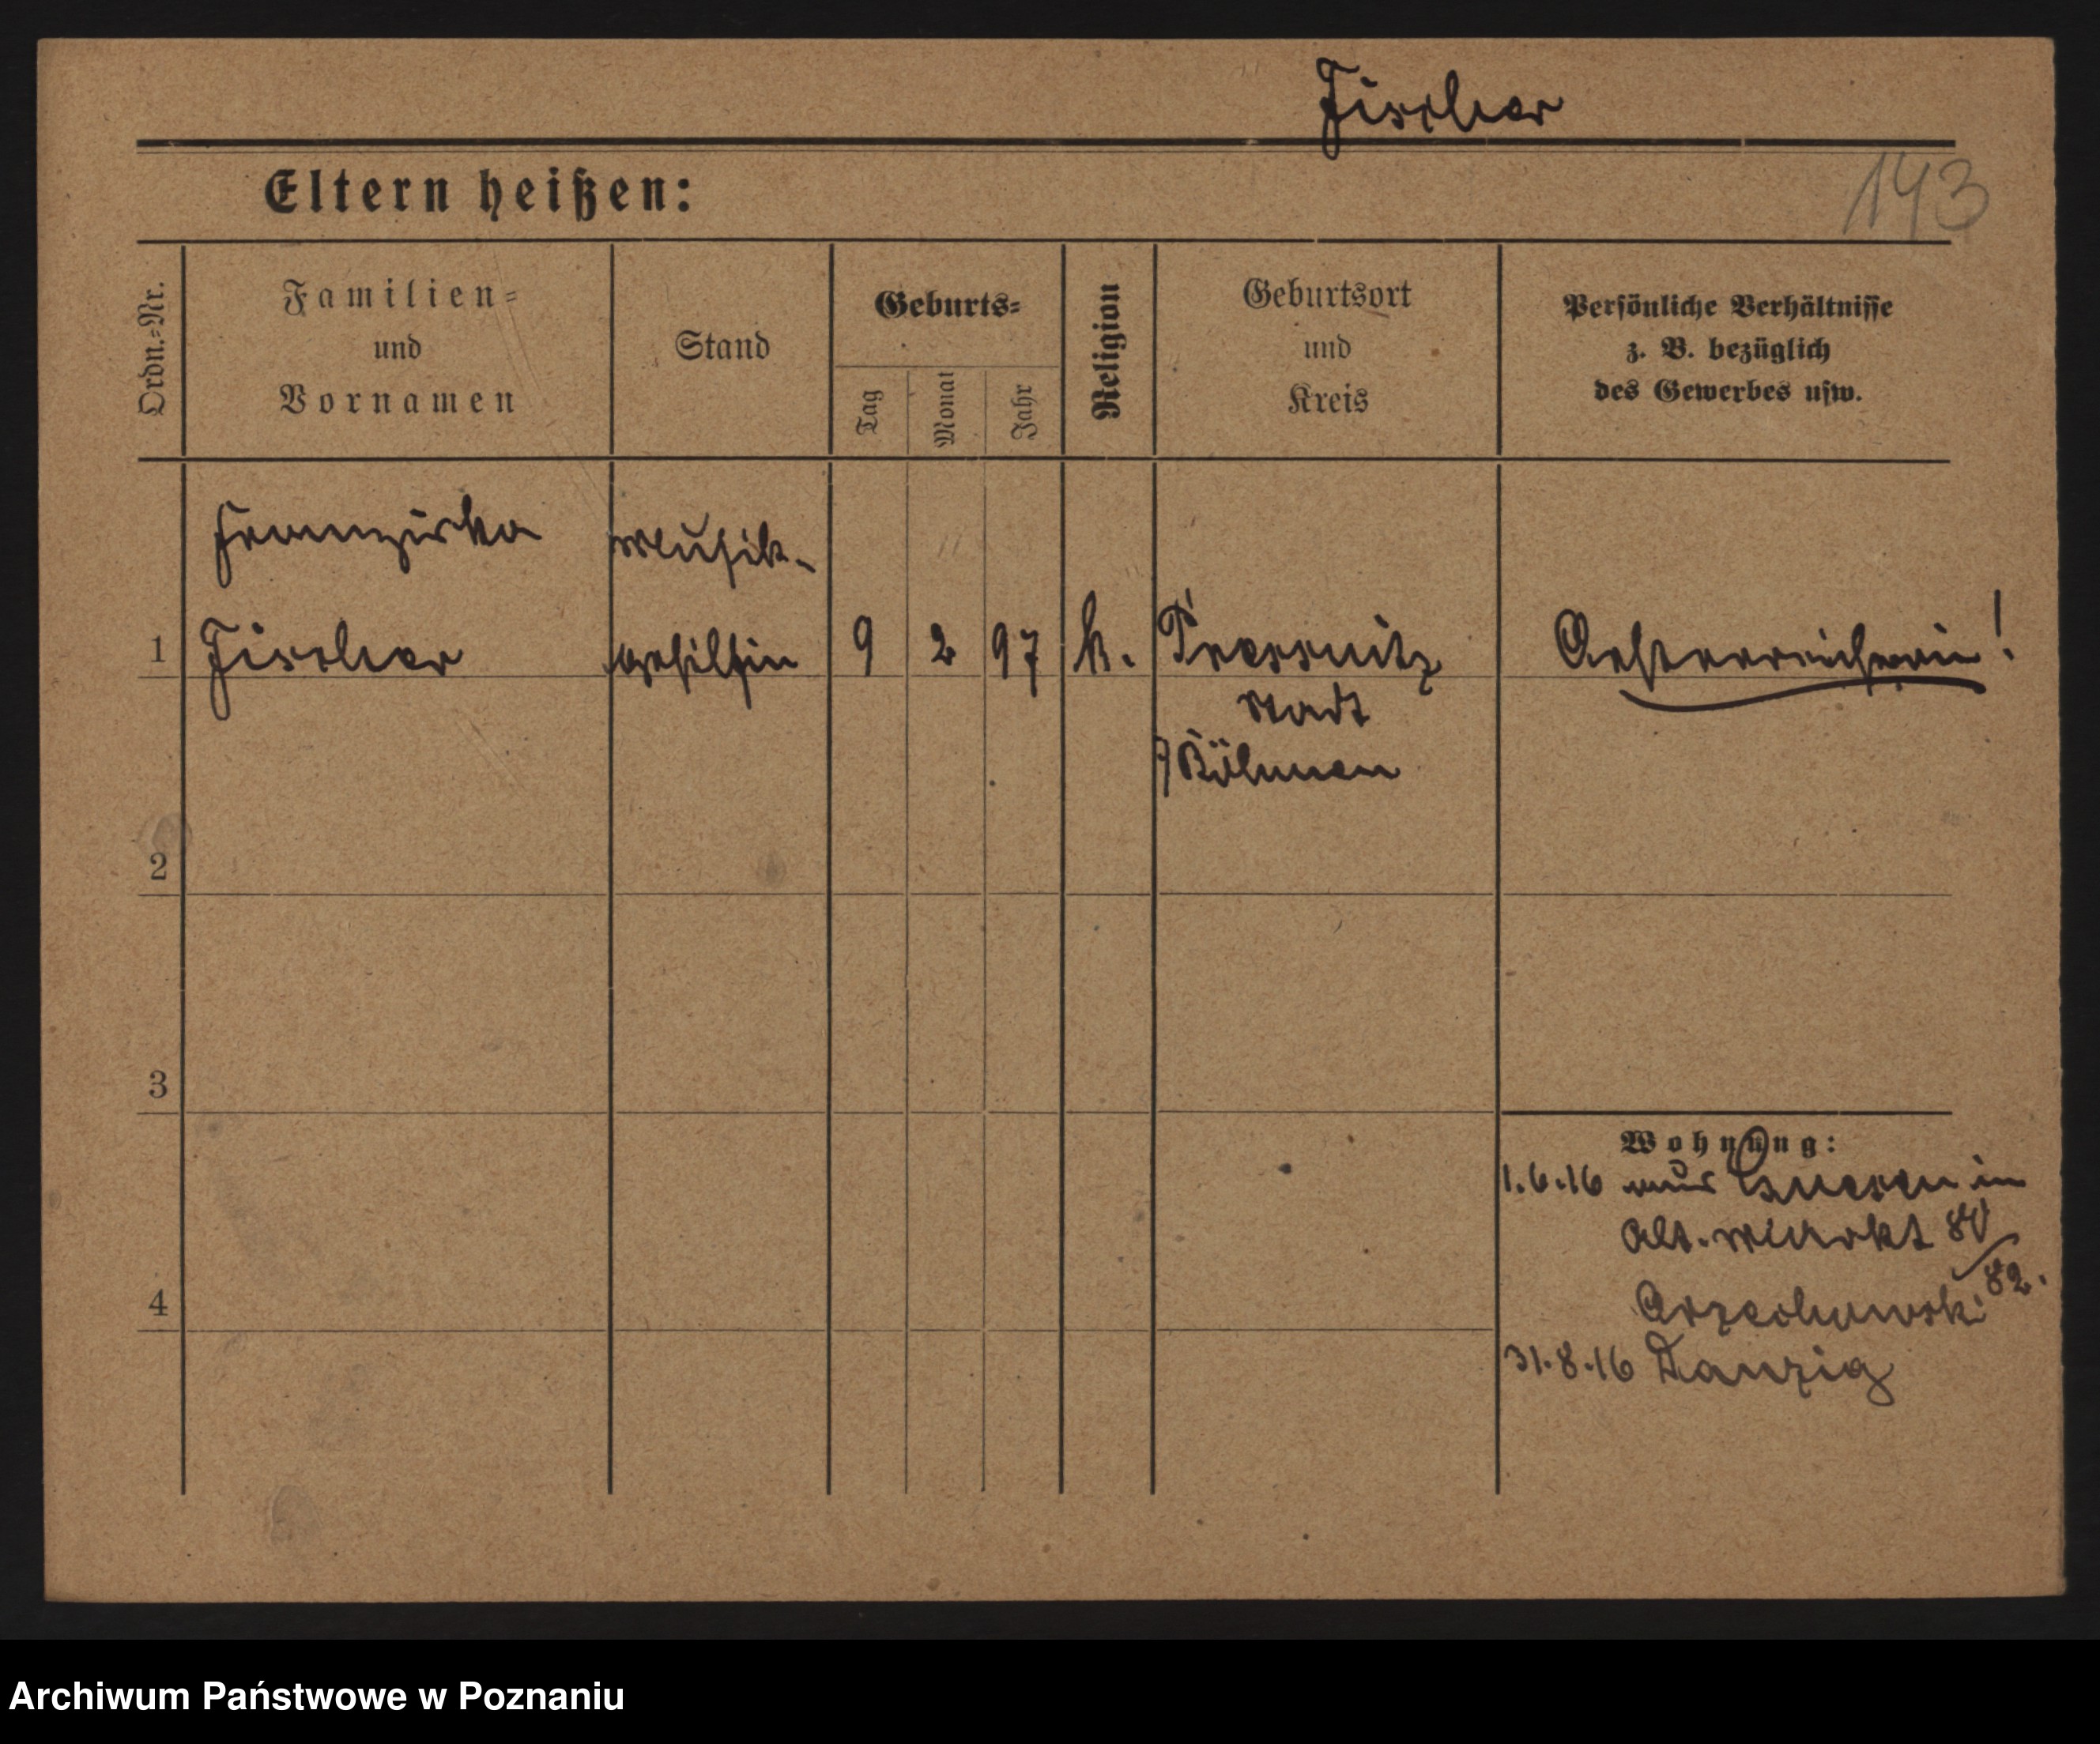 Fischer
143
Eltern heißen:
Ordn.-Nr.
Familien-
und
Vornamen
Stand
Geburts-
Tag
Monat
Jahr
Religion
Geburtsort
und
Kreis
Persönliche Verhältnisse
z. B. bezüglich
des Gewerbes usw.
Franziska
Musik-
1 Fischer gehilfin 9 2 97 k. Pressnitz Oesterreicherin!
Stadt
Böhmen
2
3
Wohnung:
1.6.16 aus Gnesen in
Alt. Markt 80/
82.
4
Orzechowski
31.8.16 Danzig
Archiwum Państwowe w Poznaniu